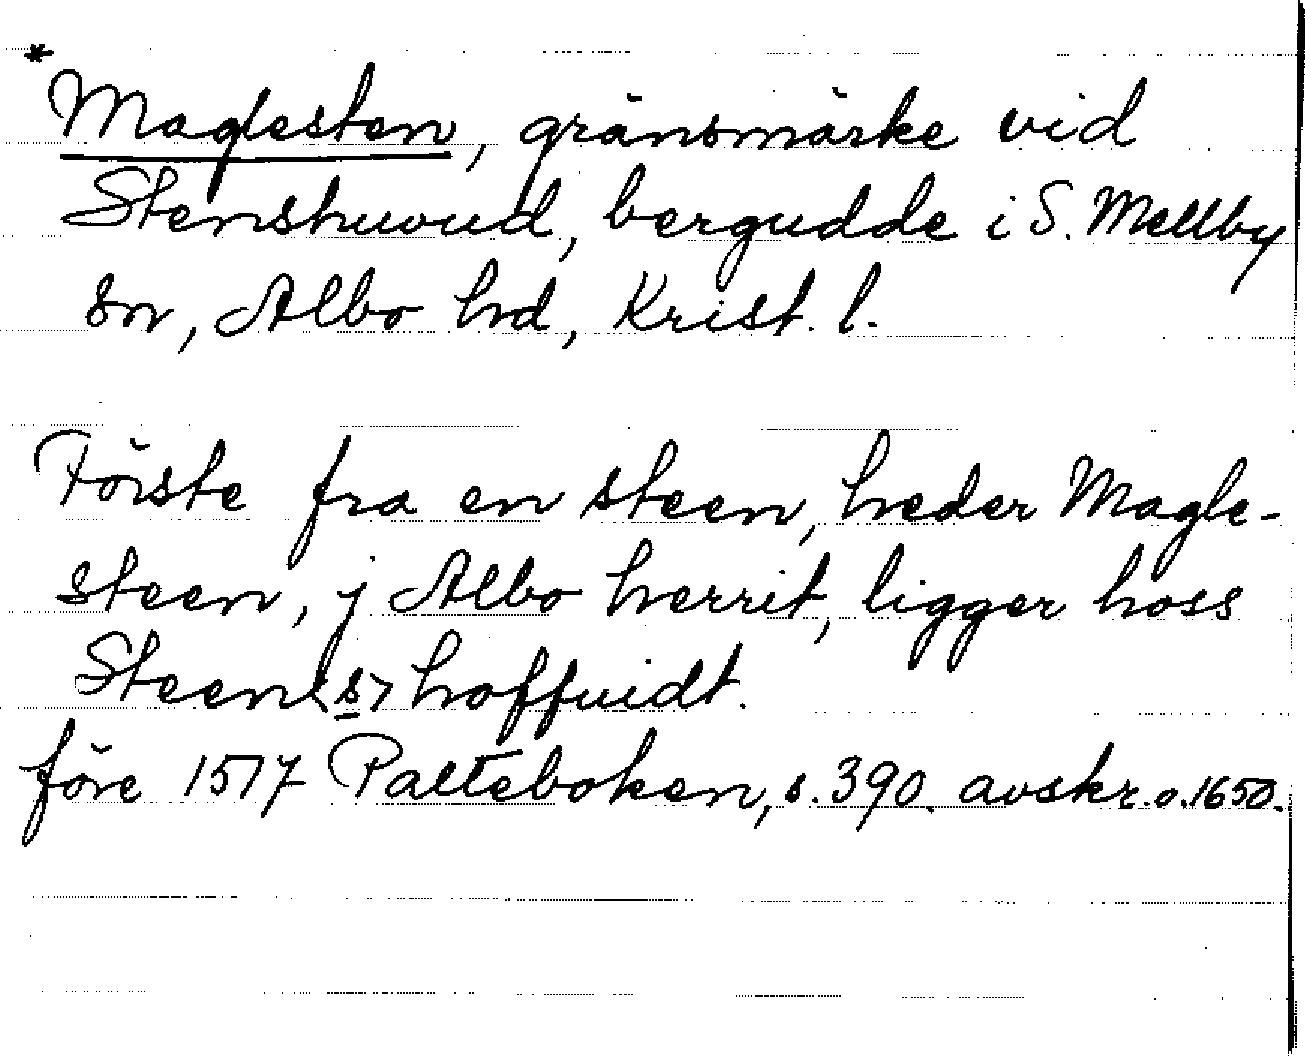 *
Maglesten, gränsmärke vid
Stenshuvud, bergudde i S. Mellby
sn, Albo hd, Krist. l.
Förste fra en steen, heder Magle-
steen, j Albo herrit, ligger hoss
Steen<s>hoffuidt.
före 1517 Palteboken, s. 390. avskr. o. 1650.